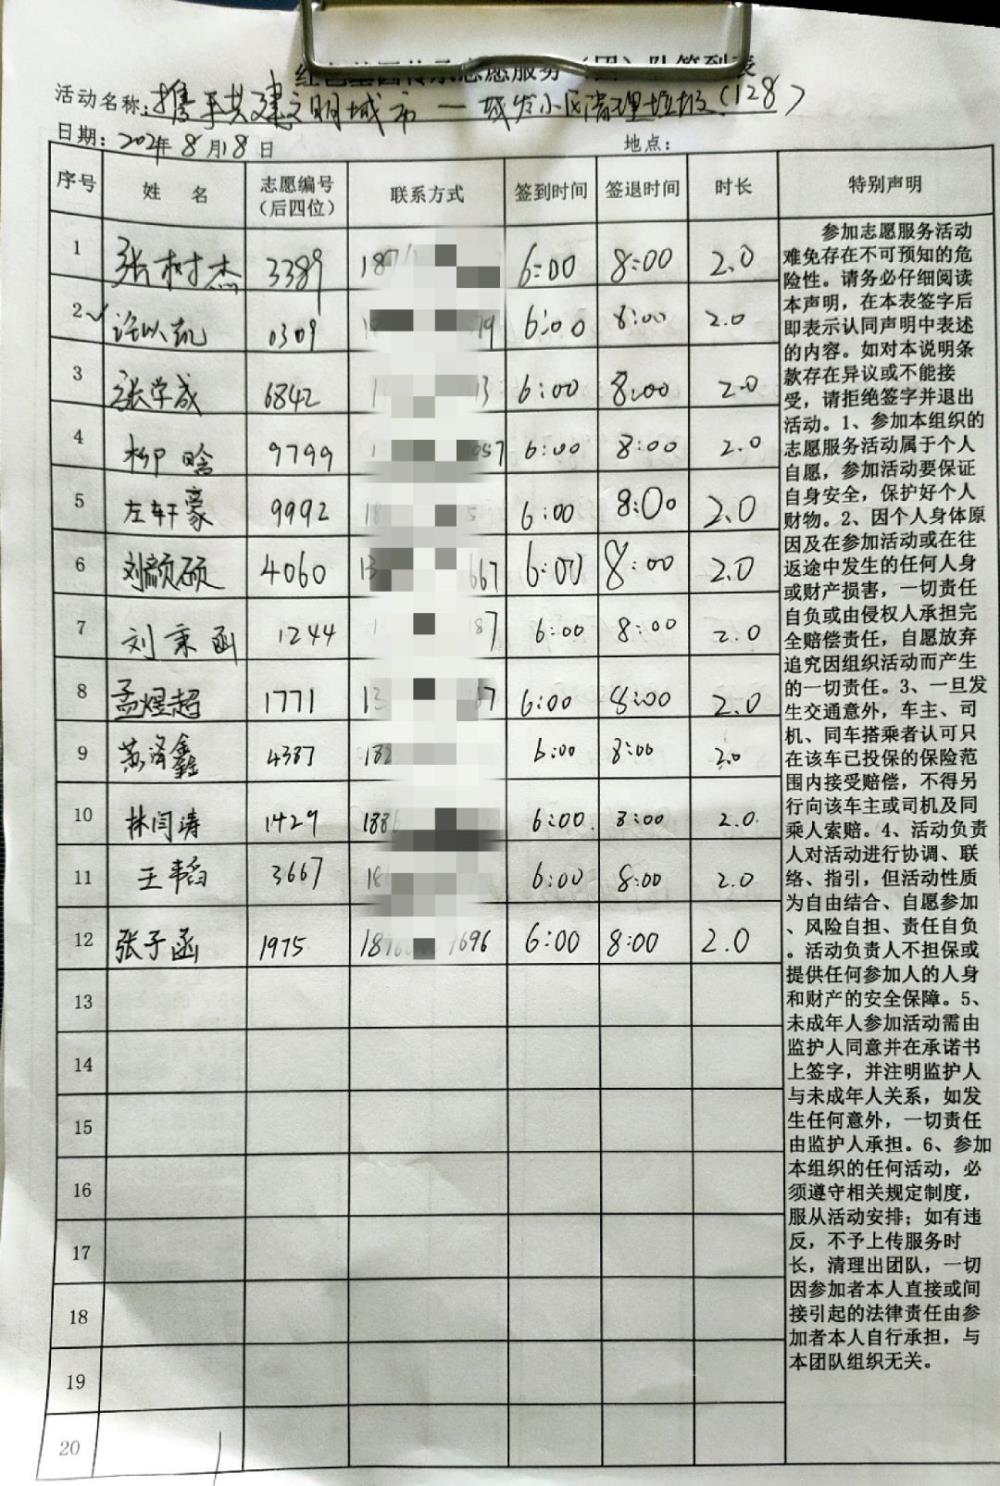 红色基因传承志愿服务（团）队签到表
活动名称：携手共建文明城市——城发小区清理垃圾（128）
日期：2021年8月18日 地点：
序号 姓 名 志愿编号（后四位） 联系方式 签到时间 签退时间 时长 特别声明
1 张树杰 3389 187 6:00 8:00 2.0
2 许以凯 0309 79 6:00 8:00 2.0
3 张学成 6842 1 13 6:00 8:00 2.0
4 柳晗 9799 1 057 6:00 8:00 2.0
5 左轩豪 9992 18 5 6:00 8:00 2.0
6 刘颜硕 4060 13 667 6:00 8:00 2.0
7 刘秉函 1244 1 87 6:00 8:00 2.0
8 孟煜超 1771 13 7 6:00 8:00 2.0
9 黄泽鑫 4387 182 6:00 8:00 2.0
10 林闫涛 1429 188 6:00 8:00 2.0
11 王韬 3667 18 6:00 8:00 2.0
12 张子函 1975 187 1696 6:00 8:00 2.0
13
14
15
16
17
18
19
20
参加志愿服务活动
难免存在不可预知的危
险性。请务必仔细阅读
本声明，在本表签字后
即表示认同声明中表述
的内容。如对本说明条
款存在异议或不能接
受，请拒绝签字并退出
活动。1、参加本组织的
志愿服务活动属于个人
自愿，参加活动要保证
自身安全，保护好个人
财物。2、因个人身体原
因及在参加活动或在往
返途中发生的任何人身
或财产损害，一切责任
自负或由侵权人承担完
全赔偿责任，自愿放弃
追究因组织活动而产生
的一切责任。3、一旦发
生交通意外，车主、司
机、同车搭乘者认可只
在该车已投保的保险范
围内接受赔偿，不得另
行向该车主或司机及同
乘人索赔。4、活动负责
人对活动进行协调、联
络、指引，但活动性质
为自由结合、自愿参加
、风险自担、责任自负
。活动负责人不担保或
提供任何参加人的人身
和财产的安全保障。5、
未成年人参加活动需由
监护人同意并在承诺书
上签字，并注明监护人
与未成年人关系，如发
生任何意外，一切责任
由监护人承担。6、参加
本组织的任何活动，必
须遵守相关规定制度，
服从活动安排；如有违
反，不予上传服务时
长，清理出团队，一切
因参加者本人直接或间
接引起的法律责任由参
加者本人自行承担，与
本团队组织无关。